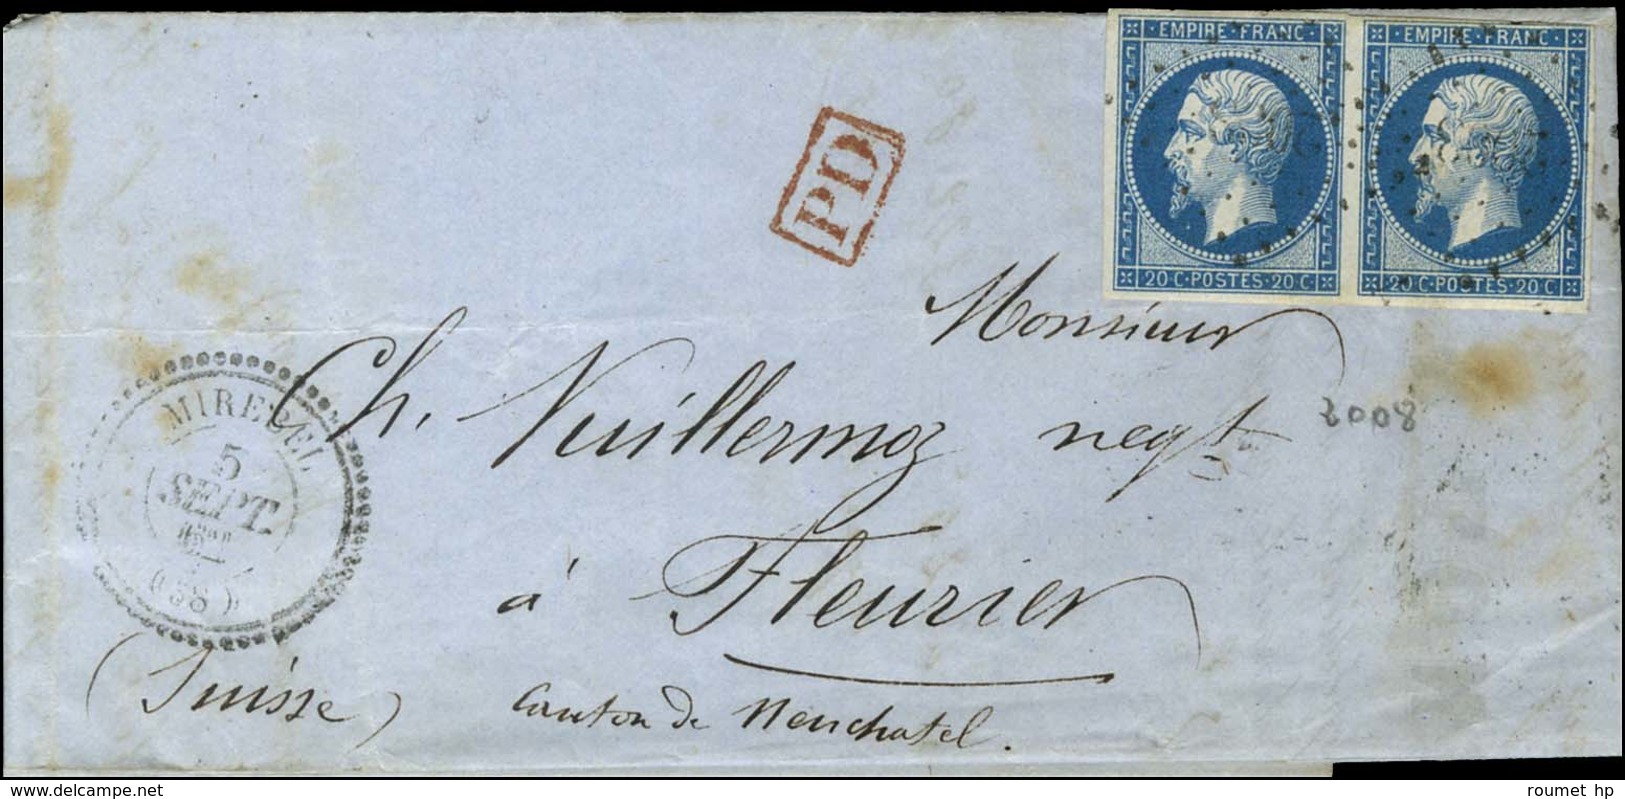 EMPIRE · FRANC · EMPIRE · FRANC ·
20 C · POSTES · 20 C 20 C · POSTES · 20 C
PD
Monsieur
Ch. Vuillermoz negt
2008
à Fleurier
(Suisse) Canton de Neuchatel.
MIREBEL
5
SEPT.
(38)
roumet hp